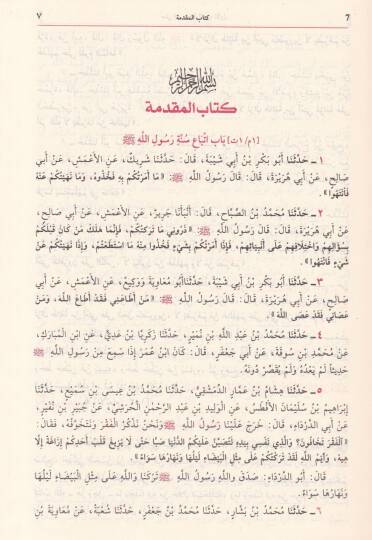 7 كتاب المقدمة ٧
بسم الله الرحمن الرحيم
كتاب المقدمة
[١م/ ١ت] بَاب اتِّبَاعِ سُنَّةِ رَسُولِ اللَّهِ ﷺ
١ ـ حَدَّثَنَا أَبُو بَكْرِ بْنُ أَبِي شَيْبَةَ، قَالَ: حَدَّثَنَا شَرِيكٌ، عَنِ الأَعْمَشِ، عَنْ أَبِي
صَالِحٍ، عَنْ أَبِي هُرَيْرَةَ، قَالَ: قَالَ رَسُولُ اللَّهِ ﷺ: «مَا أَمَرْتُكُمْ بِهِ فَخُذُوهُ، وَمَا نَهَيْتُكُمْ عَنْهُ
فَانْتَهُوا».
٢ ـ حَدَّثَنَا مُحَمَّدُ بْنُ الصَّبَّاحِ، قَالَ: أَنْبَأَنَا جَرِيرٌ، عَنِ الأَعْمَشِ، عَنْ أَبِي صَالِحٍ،
عَنْ أَبِي هُرَيْرَةَ، قَالَ: قَالَ رَسُولُ اللَّهِ ﷺ: «ذَرُونِي مَا تَرَكْتُكُمْ، فَإِنَّمَا هَلَكَ مَنْ كَانَ قَبْلَكُمْ
بِسُؤَالِهِمْ وَاخْتِلَافِهِمْ عَلَى أَنْبِيَائِهِمْ، فَإِذَا أَمَرْتُكُمْ بِشَيْءٍ فَخُذُوا مِنْهُ مَا اسْتَطَعْتُمْ، وَإِذَا نَهَيْتُكُمْ عَنْ
شَيْءٍ فَانْتَهُوا».
٣ ـ حَدَّثَنَا أَبُو بَكْرِ بْنُ أَبِي شَيْبَةَ، حَدَّثَنَا أَبُو مُعَاوِيَةَ وَوَكِيعٌ، عَنِ الأَعْمَشِ، عَنْ أَبِي
صَالِحٍ، عَنْ أَبِي هُرَيْرَةَ، قَالَ: قَالَ رَسُولُ اللَّهِ ﷺ: «مَنْ أَطَاعَنِي فَقَدْ أَطَاعَ اللَّهَ، وَمَنْ
عَصَانِي فَقَدْ عَصَى اللَّهَ».
٤ ـ حَدَّثَنَا مُحَمَّدُ بْنُ عَبْدِ اللَّهِ بْنِ نُمَيْرٍ، حَدَّثَنَا زَكَرِيَّا بْنُ عَدِيٍّ، عَنِ ابْنِ الْمُبَارَكِ،
عَنْ مُحَمَّدِ بْنِ سُوقَةَ، عَنْ أَبِي جَعْفَرٍ، قَالَ: كَانَ ابْنُ عُمَرَ إِذَا سَمِعَ مِنْ رَسُولِ اللَّهِ ﷺ
حَدِيثًا لَمْ يَعْدُهُ وَلَمْ يُقَصِّرْ دُونَهُ.
٥ ـ حَدَّثَنَا هِشَامُ بْنُ عَمَّارٍ الدِّمَشْقِيُّ، حَدَّثَنَا مُحَمَّدُ بْنُ عِيسَى بْنِ سُمَيْعٍ، حَدَّثَنَا
إِبْرَاهِيمُ بْنُ سُلَيْمَانَ الأَفْطَسُ، عَنِ الْوَلِيدِ بْنِ عَبْدِ الرَّحْمَنِ الْجُرَشِيِّ، عَنْ جُبَيْرِ بْنِ نُفَيْرٍ،
عَنْ أَبِي الدَّرْدَاءِ، قَالَ: خَرَجَ عَلَيْنَا رَسُولُ اللَّهِ ﷺ وَنَحْنُ نَذْكُرُ الْفَقْرَ وَنَتَخَوَّفُهُ، فَقَالَ:
«آلْفَقْرَ تَخَافُونَ؟ وَالَّذِي نَفْسِي بِيَدِهِ لَتُصَبَّنَّ عَلَيْكُمُ الدُّنْيَا صَبًّا حَتَّى لَا يُزِيغَ قَلْبَ أَحَدِكُمْ إِزَاغَةً إِلَّا
هِيهْ، وَايْمُ اللَّهِ لَقَدْ تَرَكْتُكُمْ عَلَى مِثْلِ الْبَيْضَاءِ لَيْلُهَا وَنَهَارُهَا سَوَاءٌ».
قَالَ أَبُو الدَّرْدَاءِ: صَدَقَ وَاللَّهِ رَسُولُ اللَّهِ ﷺ تَرَكَنَا وَاللَّهِ عَلَى مِثْلِ الْبَيْضَاءِ لَيْلُهَا
وَنَهَارُهَا سَوَاءٌ.
٦ ـ حَدَّثَنَا مُحَمَّدُ بْنُ بَشَّارٍ، حَدَّثَنَا مُحَمَّدُ بْنُ جَعْفَرٍ، حَدَّثَنَا شُعْبَةُ، عَنْ مُعَاوِيَةَ بْنِ